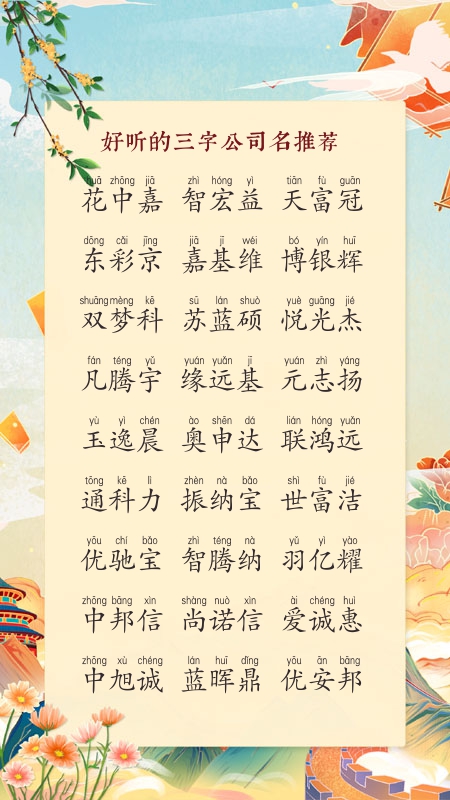 好听的三字公司名推荐
huā zhōng jiā zhì hóng yì tiān fù guān
花中嘉 智宏益 天富冠
dōng cǎi jīng jiā jī wéi bó yín huī
东彩京 嘉基维 博银辉
shuāng mèng kē sū lán shuò yuè guāng jié
双梦科 苏蓝硕 悦光杰
fán téng yǔ yuán yuǎn jī yuán zhì yáng
凡腾宇 缘远基 元志扬
yù yì chén ào shēn dá lián hóng yuǎn
玉逸晨 奥申达 联鸿远
tōng kē lì zhèn nà bǎo shì fù jié
通科力 振纳宝 世富洁
yōu chí bǎo zhì téng nà yǔ yì yào
优驰宝 智腾纳 羽亿耀
zhōng bāng xìn shàng nuò xìn ài chéng huì
中邦信 尚诺信 爱诚惠
zhōng xù chéng lán huī dǐng yōu ān bāng
中旭诚 蓝晖鼎 优安邦